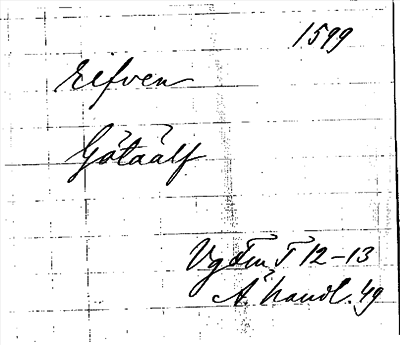 1599
Elfven
Götaälf
Vg Fm I 12-13
A. handl. 49